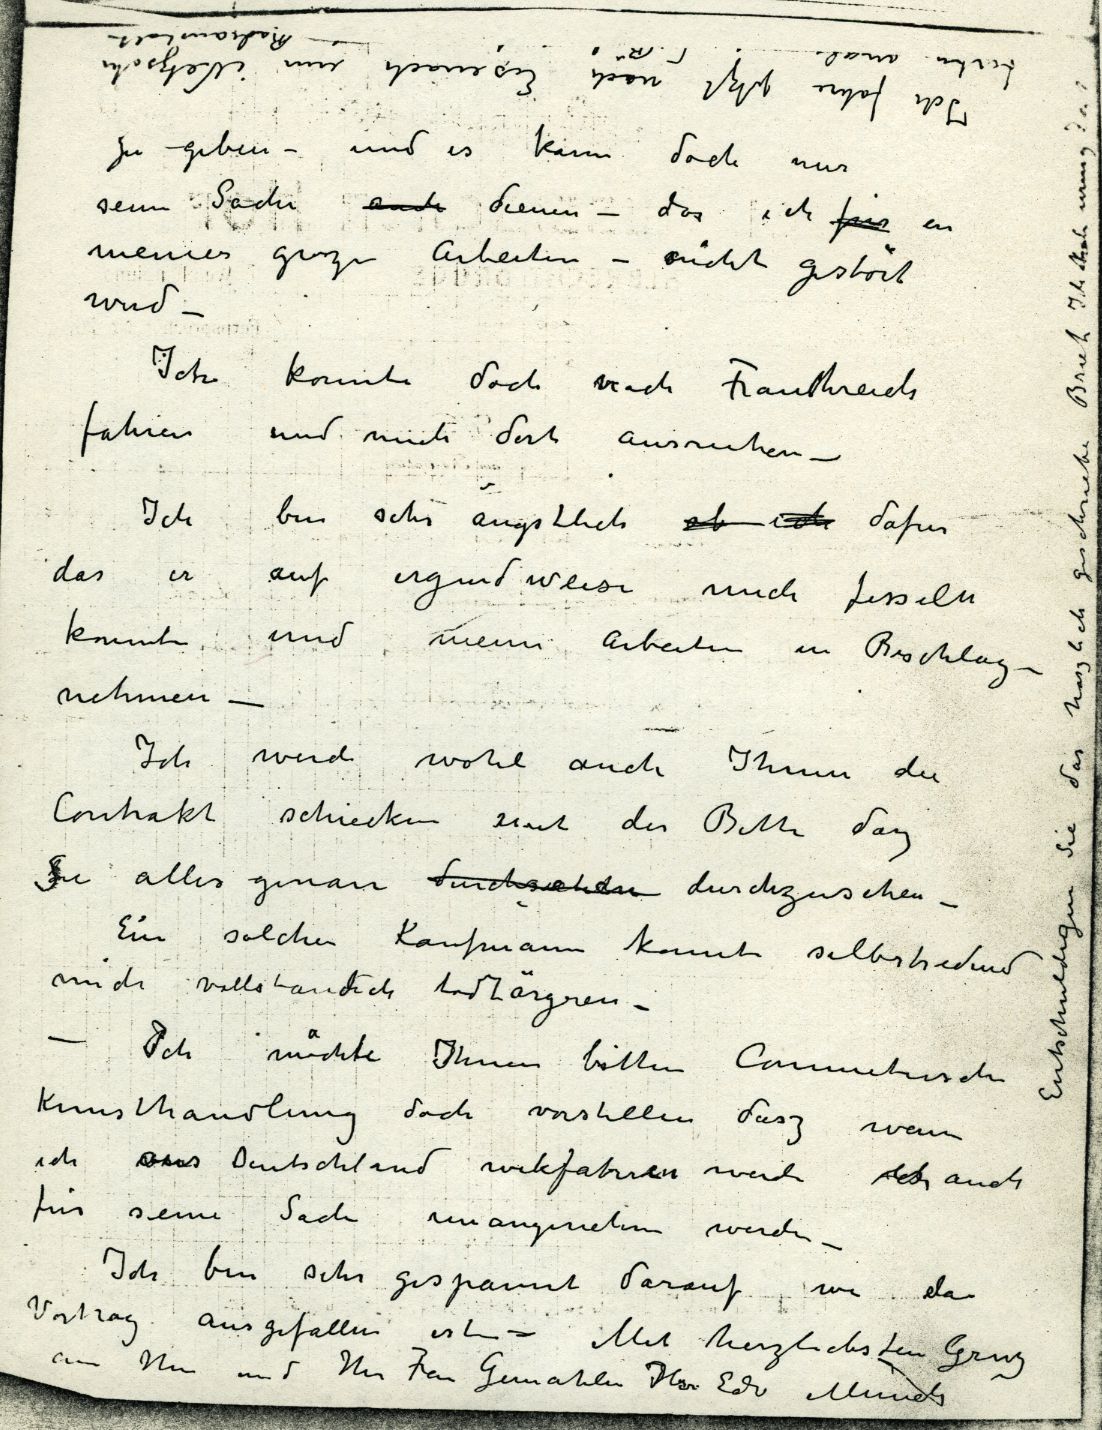 zu geben – und es kann doch nur
seine Sache dienen – das ich in
meines groze Arbeiten – nicht gestört
werd –
Ich konnte doch nach Frankreich
fahren und mich dort ausruhen –
Ich bin sehr ängstlich ob ich dafür
das er auf irgend weise mich fesseln
konnte und meine Arbeiten in Beschlag –
nehmen –
Ich werde wohl auch Ihnen die
Contrakt schicken mit der Bitte dasz
Sie alles genau durchzusehen –
Ein solcher Kaufmann konnte selbstredend
mich vollstandich todtärgeren –
– Ich möchte Ihnen bitten Commetersche
Kunsthandlung doch vorstellen dasz wenn
ich aus Deutschland wekfahren werde auch
für seine Sache unangenehm werde –
Ich bin sehr gespannt darauf wie der
Vortrag ausgefallen ist – Mit herzlichsten Grusz
an Ihn und Ihr Frau Gemahlin Ihr Edv Munch
Entschuldigen Sie das haszlich geschriebe Brief
Ich fahre jetzt nach Eisenach um